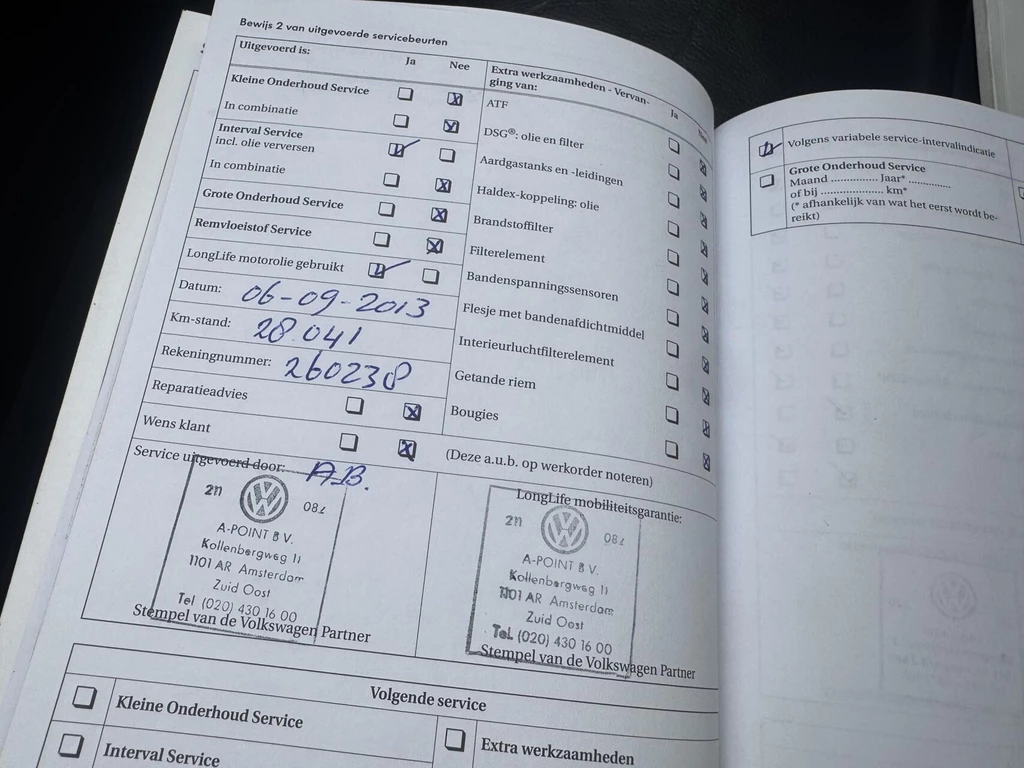 Bewijs 2 van uitgevoerde servicebeurten
Uitgevoerd is:
Ja
Nee
Kleine Onderhoud Service
In combinatie
Interval Service
incl. olie verversen
In combinatie
Grote Onderhoud Service
Remvloeistof Service
LongLife motorolie gebruikt
Datum: 06-09-2013
Km-stand: 28.041
Rekeningnummer: 260238
Reparatieadvies
Wens klant
Extra werkzaamheden - Vervan-
ging van:
Ja
ATF
DSG®: olie en filter
Aardgastanks en -leidingen
Haldex-koppeling: olie
Brandstoffilter
Filterelement
Bandenspanningssensoren
Flesje met bandenafdichtmiddel
Interieurluchtfilterelement
Getande riem
Bougies
(Deze a.u.b. op werkorder noteren)
Service uitgevoerd door: A.B.
211
A-POINT B.V.
Kollenbergweg 11
1101 AR Amsterdam
Zuid Oost
Tel (020) 430 16 00
Stempel van de Volkswagen Partner
LongLife mobiliteitsgarantie:
211
A-POINT B.V.
Kollenbergweg 11
1101 AR Amsterdam
Zuid Oost
Tel. (020) 430 16 00
Stempel van de Volkswagen Partner
Volgende service
Kleine Onderhoud Service
Interval Service
Extra werkzaamheden
Volgens variabele service-intervalindicatie
Grote Onderhoud Service
Maand ............ Jaar* ............
of bij .................. km*
(* afhankelijk van wat het eerst wordt be-
reikt)